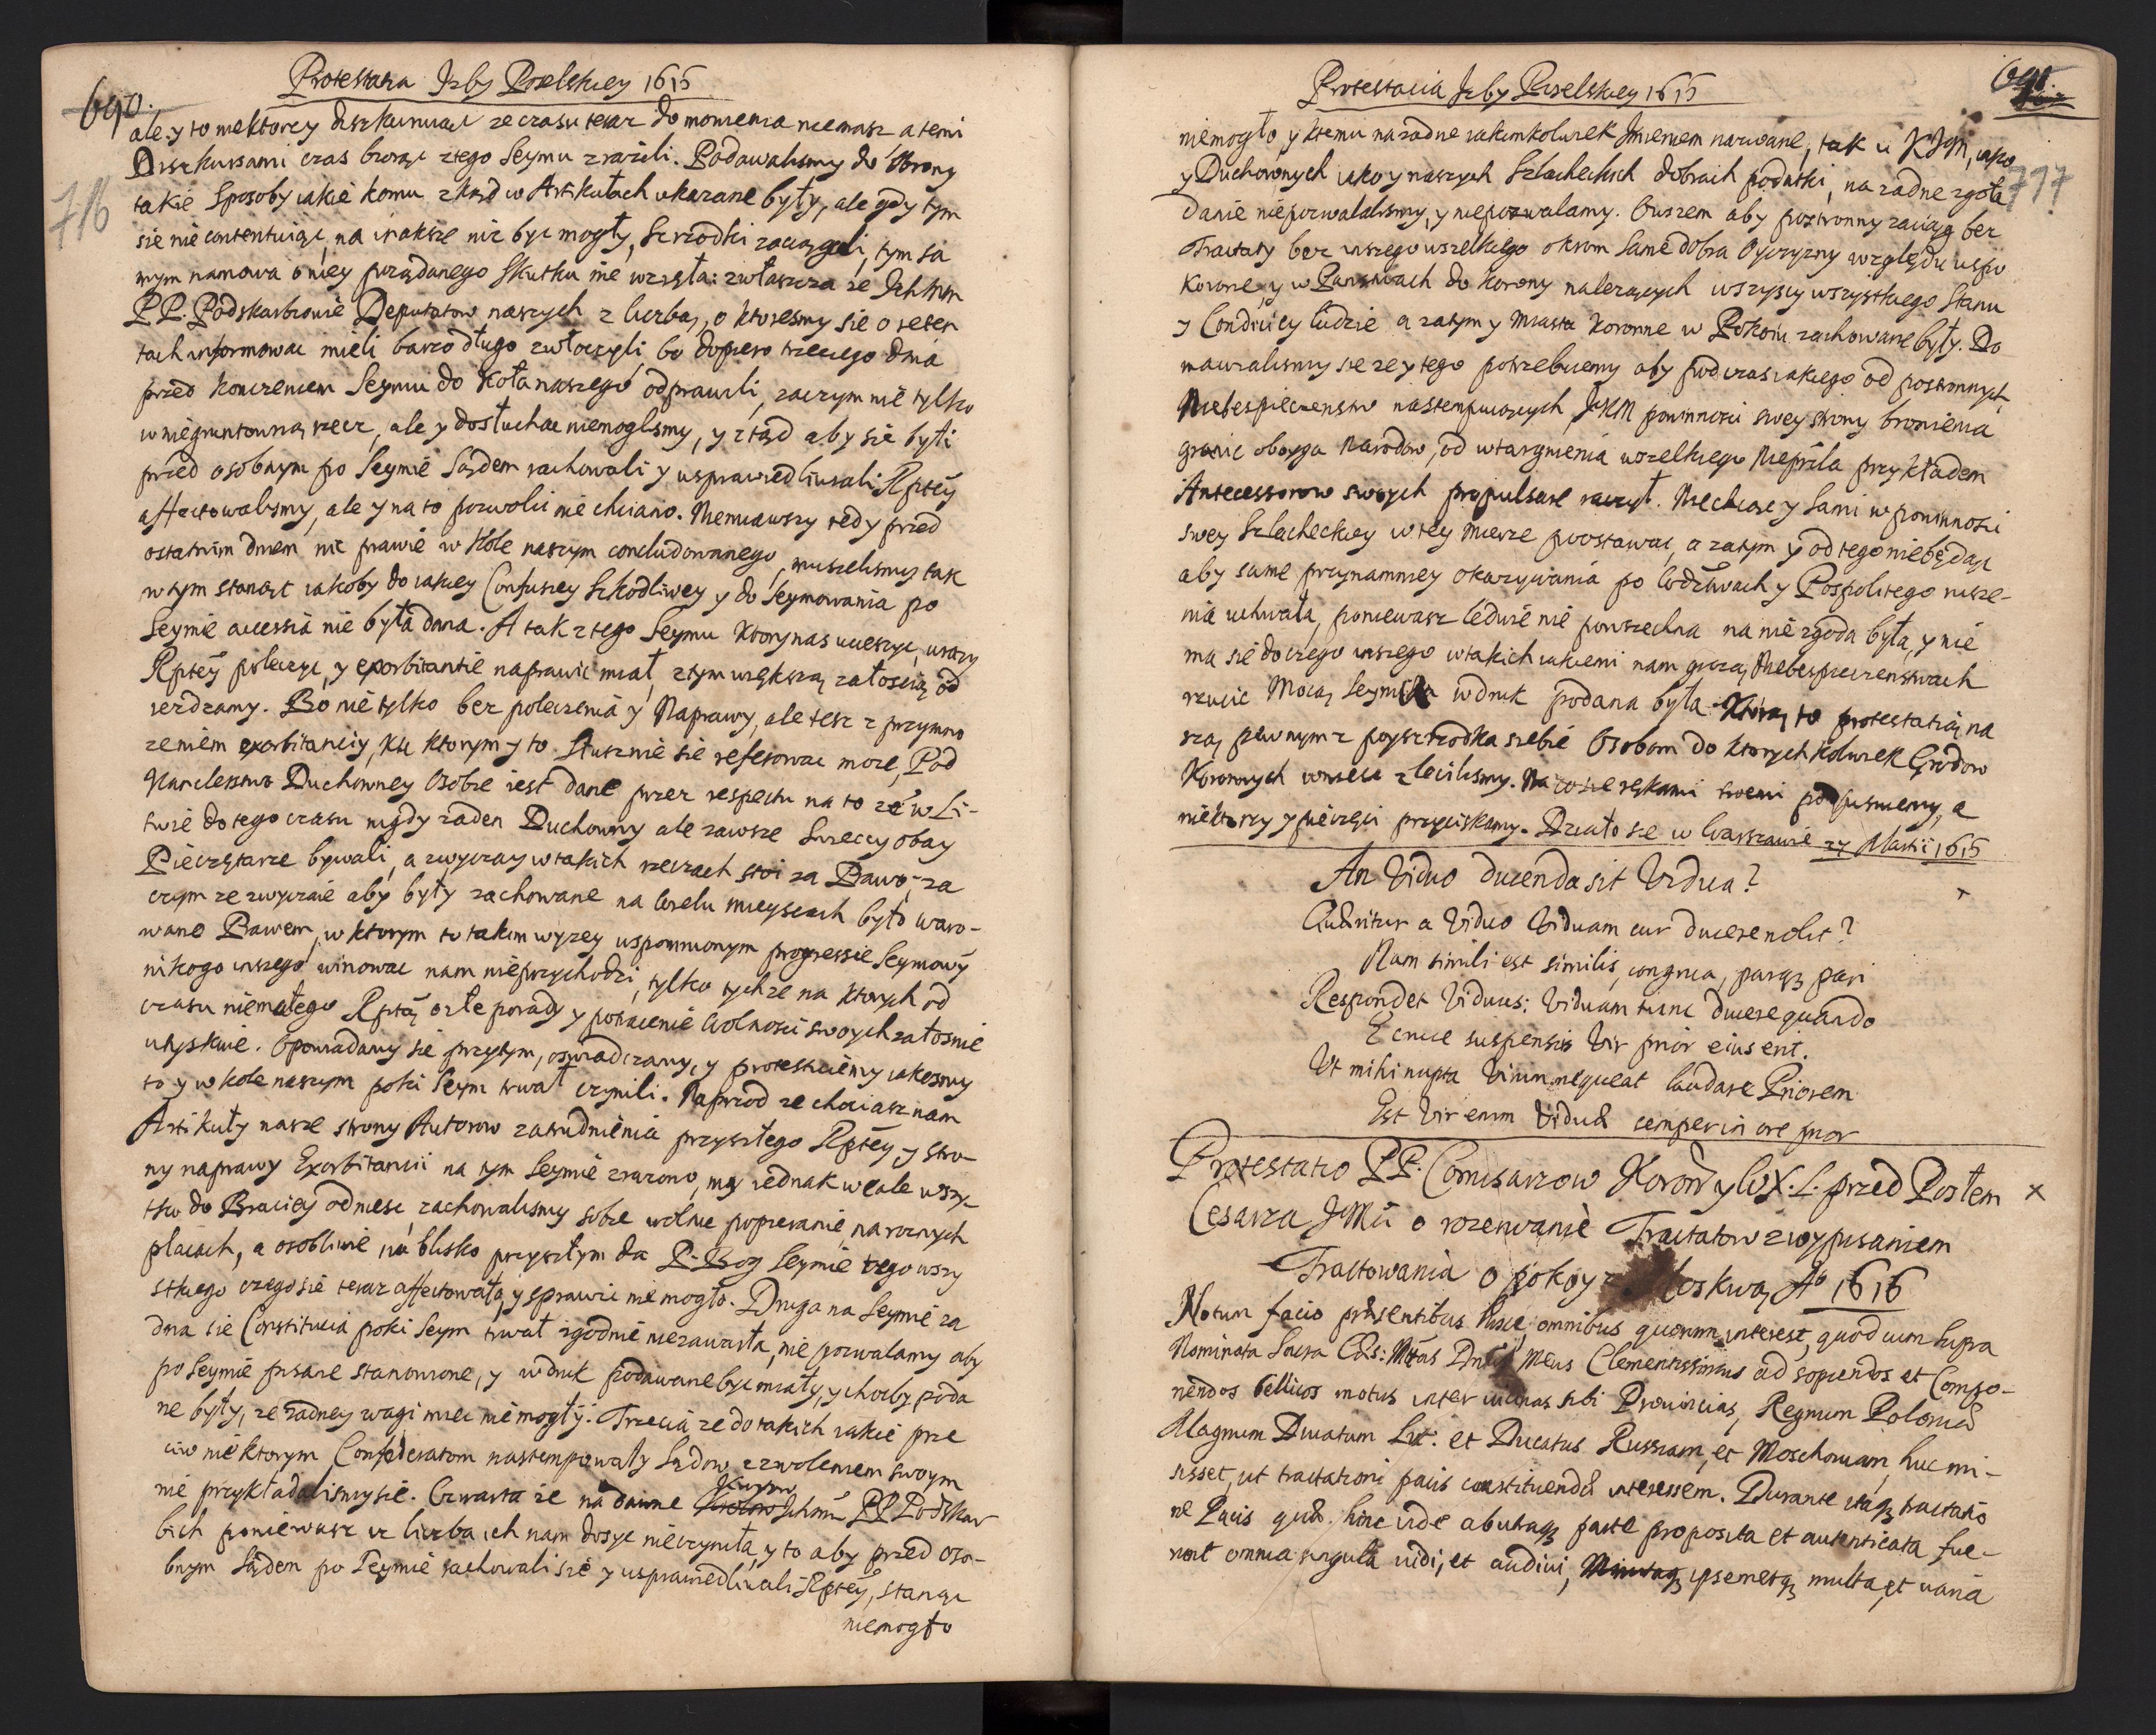 Protestatia Jzby Poselskiey 1615
690.
716
ale y to niektorzy diszkuruiąc ze czasu teraz do mowienia niemasz a temi
Diszkursami czas biorąc z tego Seymu zrazili. Podawalismy do Obrony
takie Sposoby iakie komu zkąd w Artikułach ukazane były, ale gdy tym
sie nie contentuiąc, na inaksze nic byc mogły, srzodki zaciągali, tym sa
mym namowa o niey pożądanego Skutku nie wzięła: zwłaszcza że Ichmm
PP. Podskarbiowie Deputatow naszych z liczbą, o ktoresmy sie o reten
tach informowac mieli barzo długo zwłoczyli bo dopiero trzeciego dnia
przed konczeniem Seymu do koła naszego odprawili, zaczym nie tylko
w niegruntowną rzecz, ale y dosłuchac niemoglismy, y ztąd aby sie byli
przed osobnym po Seymie Sądem rachowali y usprawiedliwiali Rptey
affectowalismy, ale y na to pozwolic nie chciano. Niemiawszy tedy przed
ostatnim dniem nic prawie w kole naszym concludowanego, musielismy tak
w tym stanąc iakoby do iakiey Confusiey szkodliwey y do Seymowania po
Seymie accessia nie była dana. A tak z tego Seymu ktory nas ucieszyc, urazy
Rptey poleczyc, y exorbitantie naprawic miał, z tym większą załoscią od
iezdzamy. Bo nie tylko bez poleczenia y Naprawy, ale tesz z przymno
zeniem exorbitanciy, ku ktorym y to słusznie sie referowac moze, Pod
Kanclerstwo Duchowney Osobie iest dane przez respectu na to ze w Li-
twie do tego czasu nigdy zaden Duchowny ale zawsze Swieccy obay
Pieczętarze bywali, a zwyczay w takich rzeczach stoi za Prawo, za
czym ze zwyczaie aby były zachowane na wielu mieyscach było waro-
wano Prawem, w ktorym to takim wyzey uspomnionym progressie Seymowy
nikogo inszego winowac nam nieprzychodzi, tylko tychze na ktorych od
czasu niemałego Rptą o złe porady y potracenie Wolnosci swoych załosnie
utyskuie. Opowiadamy sie przytym, oswiadczamy, y protestuiemy iakosmy
to y w kole naszym poki Seym trwał czynili. Naprzod ze chociasz nam
Artikuły nasze strony Autorow zatrudnienia przyszłego Rptey y stro-
ny naprawy Exorbitancii na tym Seymie zrazono, my iednak wcale wszy-
tko do Braciey odniesc, zachowalismy sobie wolne popieranie na roznych
placach, a osobliwie na blisko przyszłym da P. Bog Seymie tego wszy
stkiego czego sie teraz affectowało, y sprawic nie mogło. Druga na Seymie za
dna sie Constitucia poki Seym trwał zgodnie niezawarła, nie pozwalamy aby
po Seymie pisane stanowione, y w druk podawane byc miały, y chocby poda
ne były, ze zadney wagi miec nie mogły. Trzecia ze do takich iakie prze
ciw niektorym Confederatom nastempowały Sądow zezwoleniem swoym
nie przykładalismy sie. Czwarta ze na dawne Ichmm PP Podskar
bich poniewasz iz liczba ich nam dosyc nieczyniła, y to aby przed oso-
bnym Sądem po Seymie rachowali sie y usprawiedliwiali Rptey, stanąc
niemogło
Protestacia Jzby Poselskiey 1615
691
717
niemogło, y ktemu na zadne iakimkolwiek Imieniem nazwane, tak u KJM, iako
y Duchownych iako y naszych Szlacheckich dobrach podatki, na zadne zgoła
danie niepozwalalismy, y niepozwalamy. Owszem aby postronny zaciąg bez
Tractaty bez inszego wszelkiego okrom same dobra Oyczyzny względu uspo
Koronie y w Panstwach do korony nalezących wszyscy wszystkiego Stanu
y Condiciey ludzie a zatym y Miasta koronne w Pokoiu zachowane były. Do
mawialismy sie ze y tego potrzebuiemy aby podczas iakiego od postronnych
Niebespieczenstw nastempuiących JKM powinnosci swey strony bronienia
granic oboyga Narodow, od wtargnienia wszelkiego Nieprzla przykładem
Antecessorow swoych propulsare raczył. Niechcąc y Sami w powinnosci
swey Szlacheckiey w tey mierze pozostawac, a zatym y od tego niebędąc
aby same przynamniey okazywania po Wodztwach y Pospolitego rusze-
nia uchwała, poniewasz ledwie nie powszechna na nie zgoda była, y nie
ma sie do czego inszego w takich iakiemi nam grożą Niebespieczenstwach
rzucic Mocą Seymu w druk podana była. Którą to protestatią na
szą pewnym z posrzodka siebie Osobom do ktorychkolwiek Grodow
Koronnych wniesc zlecilismy. Na co sie rękami swemi podpisuiemy, a
niektorzy y pieczęci przyciskamy. Działo sie w Warszawie 27 Martii 1615
An Viduo ducenda sit Vidua?
Quæritur a Viduo Viduam cur ducere nolit?
Nam simili est similis, congrua, parq3 pari
Respondet Viduus: Viduam tunc ducere quando
E cruce suspensus Vir prior eius erit.
Ut mihi nupta Virum nequeat laudare Priorem
Est Vir enim Viduæ semper in ore prior
Protestatio PP. Comisarzow Koron y W.X.L. przed Posłem ×
Cesarza JMci o rozerwanie Tractatow z wypisaniem
Tractowania o pokoy z Moskwą Ao 1616
Notum facio præsentibus hisce, omnibus quorum interest, quod cum Supra
Nominata Sacra Cæs: Mtas Dnus Meus Clementissimus ad sopiendos et Compo-
nendos bellicos motus inter vicinas sibi Provincias, Regnum Poloniæ
Magnum Ducatum Lit: et Ducatus Russiam, et Moschoviam, huc mi-
sisset, ut tractationi pacis constituendæ interessem. Durante itaq3 tractatio
ne Pacis quæ hinc inde ab utraq3 parte proposita et autenticata fue-
rint omnia singula vidi, et audivi, ipsemetq3 multa, et varia